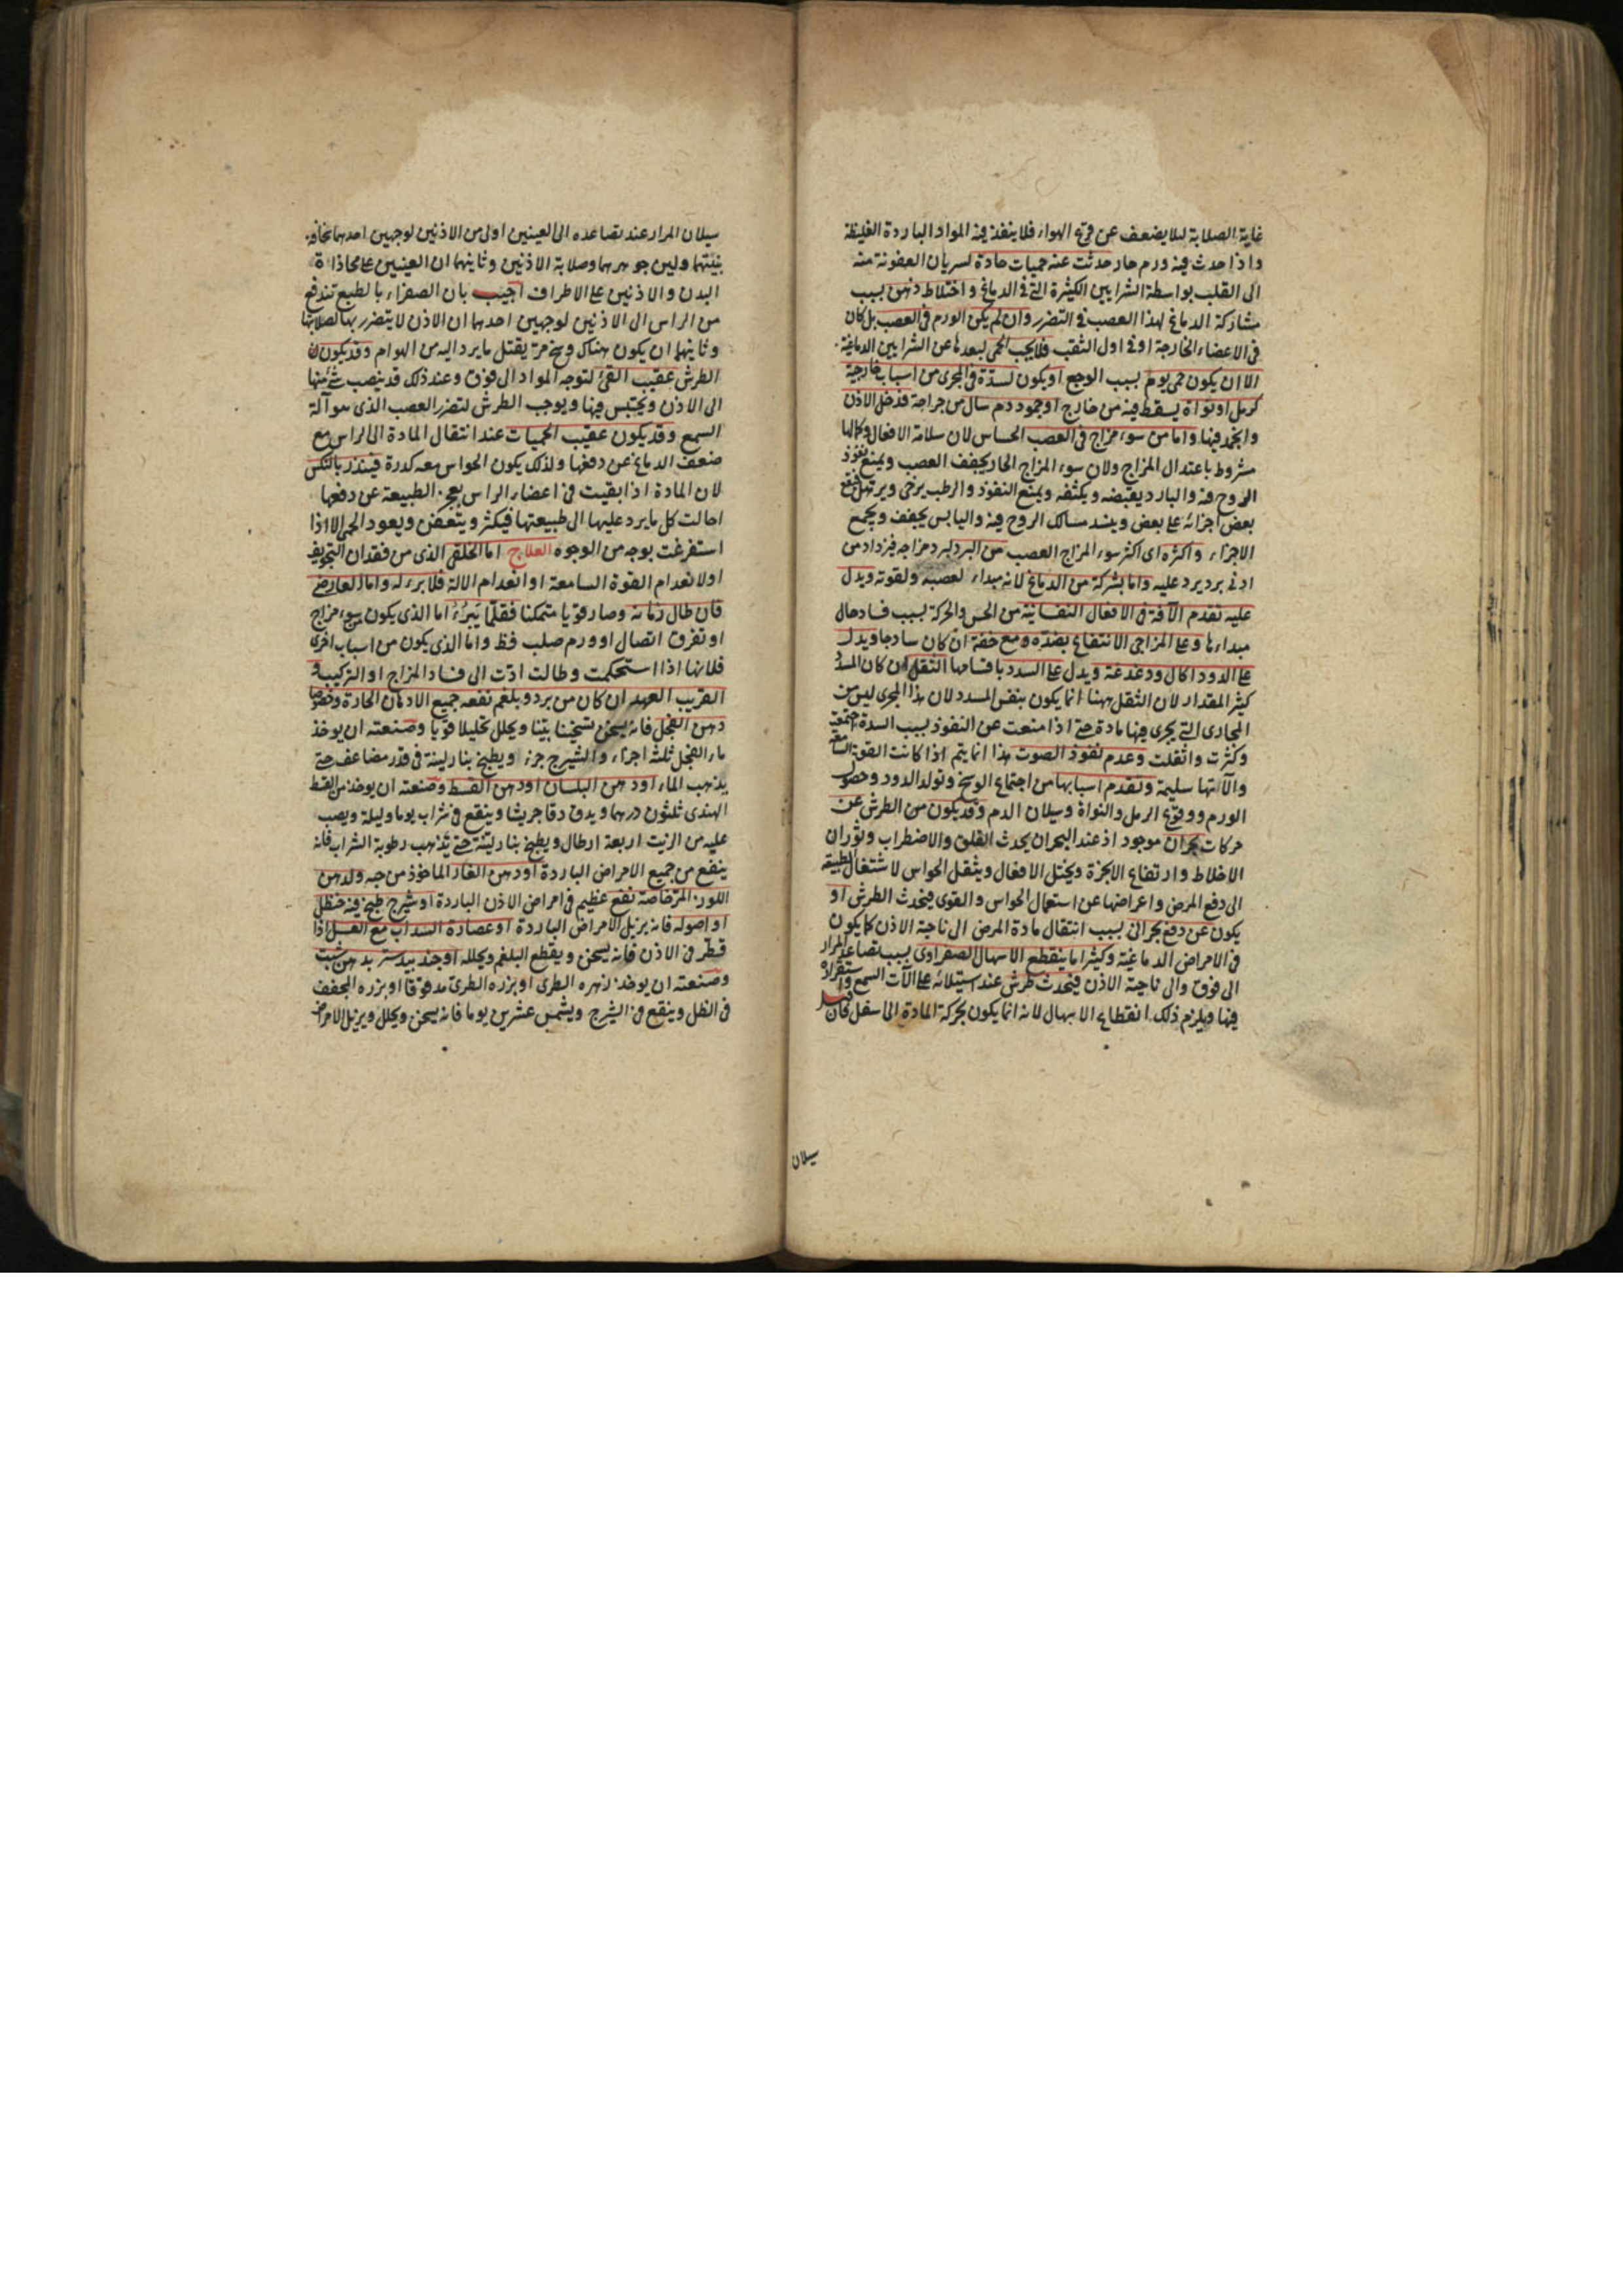 غاية الصلابة ليلا يضعف عن قرع الهواء فلا ينفذ فيه المواد الباردة الغليظة
واذا حدث فيه ورم حار حدثت عنه حميات حادة لسريان العفونة منه
الى القلب بواسطة الشرايين الكثيرة التى فى الدماغ واختلاط ذهن بسبب
مشاركة الدماغ لهذا العصب فى التضرر وان لم يكن الورم فى العصب بل كان
فى الاعضاء الخارجة او فى اول الثقب فلا يجب الحمى لبعدها عن الشرايين الدماغية
الا ان يكون حمى يوم بسبب الوجع او يكون لسدة فى المجرى من اسباب خارجية
كرمل او نواة يسقط فيه من خارج او جمود دم سال من جراحة فدخل الاذن
وانجمد فيها واما من سوء مزاج فى العصب الحساس لان سلامة الافعال وكمالها
مشروط باعتدال المزاج ولان سوء المزاج الحار يجفف العصب ويمنع نفوذ
الروح فيه والبارد يقبضه ويكثفه ويمنع النفوذ والرطب يرخى ويرتهل فيقع
بعض اجزائه على بعض وينسد مسالك الروح فيه واليابس يجفف ويجمع
الاجزاء واكثره اى اكثر سوء المزاج العصب من البرد لبرد مزاجه فيزداد من
ادنى برد يرد عليه واما بشركة من الدماغ لانه مبداء لعصبه ولقوته ويدل
عليه تقدم الآفة فى الافعال النفسانية من الحس والحركة بسبب فساد حال
مبداءها وعلى المزاجى الانتفاع بضده ومع خفة ان كان ساذجا ويدل
على الدود اكال ودغدغة ويدل على السدد باقسامها الثقل ان كان المسدد
كثير المقدار لان الثقل ههنا انما يكون بنفس المسدد لان هذا المجرى ليس من
المجارى التى يجرى فيها مادة حتى اذا منعت عن النفوذ بسبب السدة اجتمعت
وكثرت واثقلت وعدم نفوذ الصوت هذا انما يتم اذا كانت القوة السامعة
والآلتها سليمة وتقدم اسبابها من اجتماع الوسخ وتولد الدود وحصول
الورم ووقوع الرمل والنواة وسيلان الدم وقد يكون من الطرش عن
حركات بحران موجود اذ عند البحران يحدث القلق والاضطراب وثوران
الاخلاط وارتفاع الابخرة ويختل الافعال ويثقل الحواس لاشتغال الطبيعة
الى دفع المرض واعراضها عن استعمال الحواس والقوى فيحدث الطرش او
يكون عن دفع بحرانى بسبب انتقال مادة المرض الى ناحية الاذن كما يكون
فى الامراض الدماغية وكثيرا ما ينقطع الاسهال الصفراوى بسبب تصاعد المرار
الى فوق والى ناحية الاذن فيحدث طرش عند استيلائه على الآت السمع واستقراره
فيها ويلزم ذلك انقطاع الاسهال لانه انما يكون بحركة المادة الى اسفل فان قيل
سيلان
سيلان المرار عند تصاعده الى العينين اولى من الاذنين لوجهين احدهما تخاوة
بنيتهما ولين جوهرهما وصلابة الاذنين وثانيهما ان العينين على محاذاة
البدن والاذنين على الاطراف اجيب بان الصفراء بالطبع تندفع
من الراس الى الاذنين لوجهين احدهما ان الاذن لا يتضرر بها لصلابتها
وثانيهما ان يكون هناك وسخ مرة يقتل ما يرد اليه من الهوام وقد يكون
الطرش عقيب القئ لتوجه المواد الى فوق وعند ذلك قد ينصب شئ منها
الى الاذن ويحتبس فيها ويوجب الطرش لتضرر العصب الذى هو آلة
السمع وقد يكون عقيب الحميات عند انتقال المادة الى الراس مع
ضعف الدماغ عن دفعها ولذلك يكون الحواس معه كدرة فينذر بالنكس
لان المادة اذا بقيت فى اعضاء الراس بعجز الطبيعة عن دفعها
احالت كل ما يرد عليها الى طبيعتها فيكثر ويتعفن ويعود الحمى الا اذا
استفرغت بوجه من الوجوه العلاج اما الخلقى الذى من فقدان التجويف
او لانعدام القوة السامعة او انعدام الالة فلا برء له واما العارضى
فان طال زمانه وصار قويا متمكنا فقلما يبرء اما الذى يكون بسوء مزاج
او تفرق اتصال او ورم صلب فظ واما الذى يكون من اسباب اخرى
فلانها اذا استحكمت وطالت ادت الى فساد المزاج او التركيب و
القريب العهد ان كان من برد وبلغم نفعه جميع الادهان الحارة وخصوصا
دهن الفجل فانه يسخن تسخينا بينا ويحلل تحليلا قويا وصنعته ان يوخذ
ماء الفجل ثلثة اجزاء والشيرج جزء ويطبخ بنار لينة فى قدر مضاعف حتى
يذهب الماء او دهن البلسان او دهن القسط وصنعته ان يوخذ من القسط
الهندى ثلثون درهما ويدق دقا جريشا وينقع فى شراب يوما وليلة ويصب
عليه من الزيت اربعة ارطال ويطبخ بنار لينة حتى يذهب رطوبة الشراب فانه
ينفع من جميع الامراض الباردة او دهن الغار الماخوذ من حبه ولدهن
اللوز المر خاصة نفع عظيم فى امراض الاذن الباردة او شيرج طبخ فيه حنظل
او اصوله فانه يزيل الامراض الباردة او عصارة السداب مع العسل اذا
قطر فى الاذن فانه يسخن ويقطع البلغم ويحلله او جندبيدستر بدهن شبت
وصنعته ان يوخذ زهره الطرى او بزره الطرى مدقوقا او بزره المجفف
فى الظل وينقع فى الشيرج ويشمس عشرين يوما فانه يسخن ويحلل ويزيل الامراض